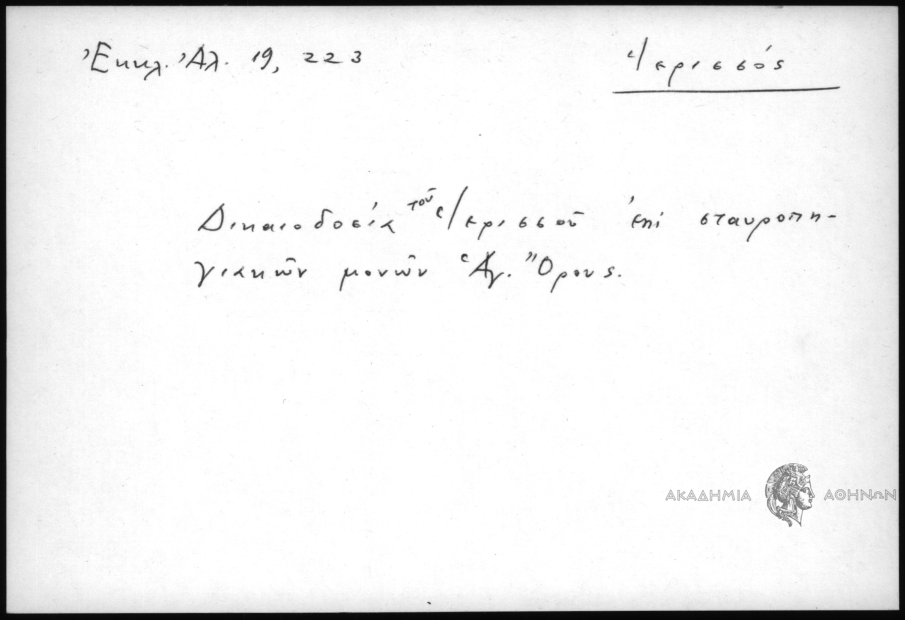 Ἐκκλ. Ἀλ. 19, 223
Ἱερισσός
Δικαιοδοσία τοῦ Ἱερισσοῦ ἐπὶ σταυροπη-
γιακῶν μονῶν Ἁγ. Ὄρους.
ΑΚΑΔΗΜΙΑ ΑΘΗΝΩΝ